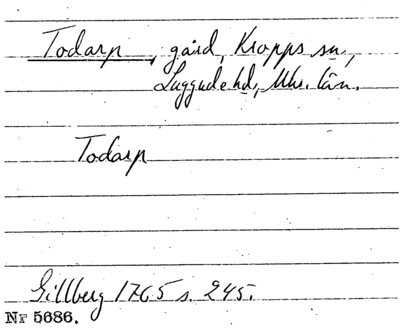 Todarp, gård, Kropps sn,
Luggude hd, Mhs. län.
Todarp
Gillberg 1765 s. 245.
Nr 5686.